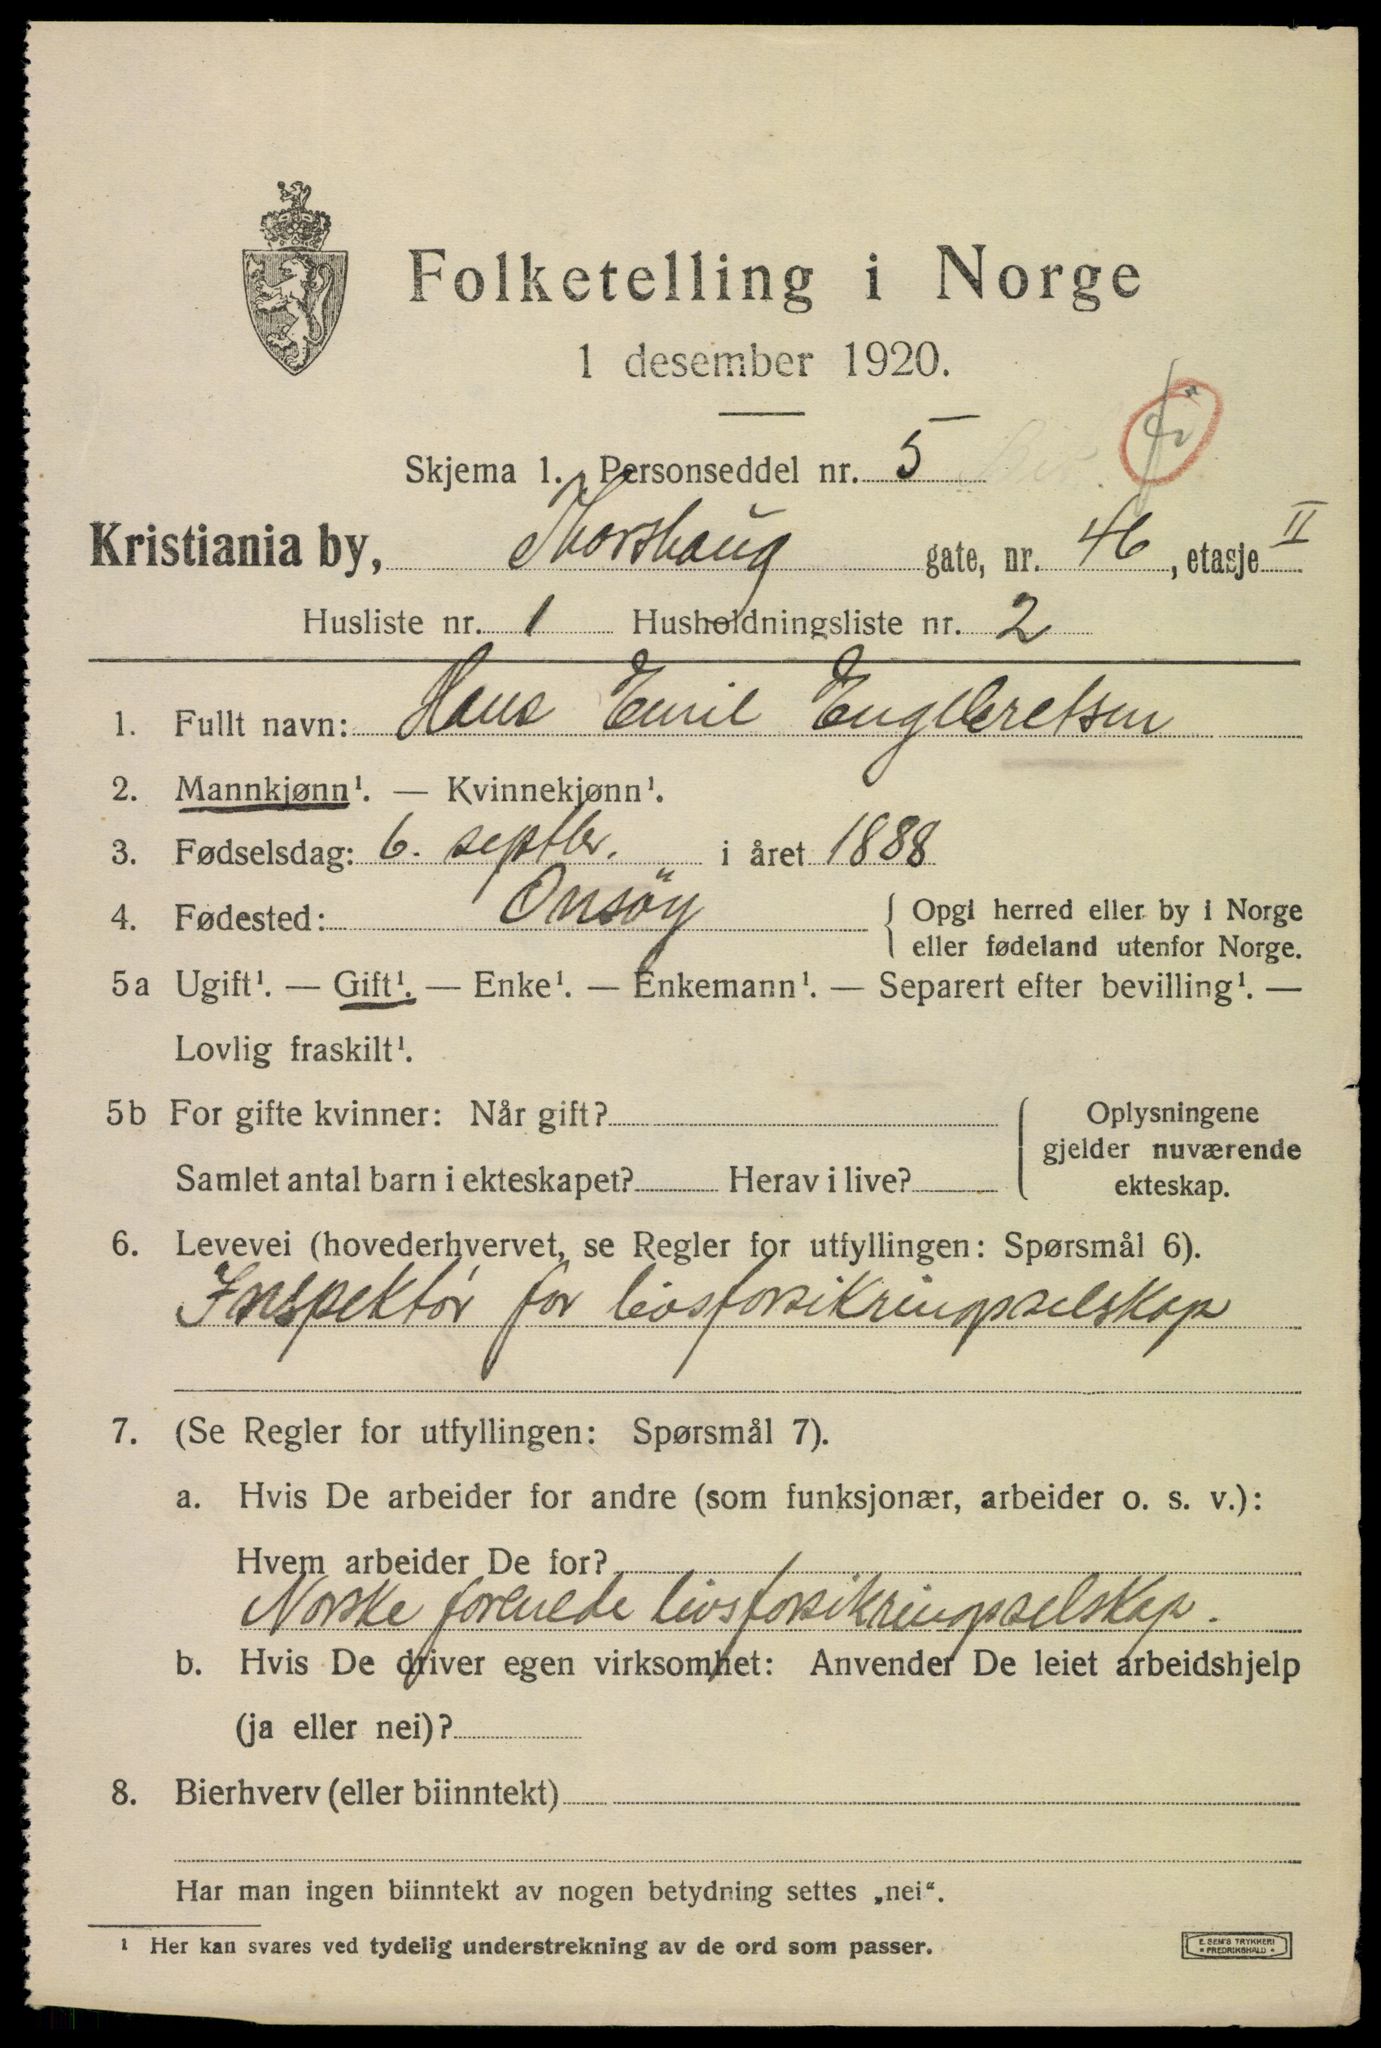 Folketelling i Norge
1 desember 1920.
Skjema 1. Personseddel nr. 5
Kristiania by, Thorshaug gate, nr. 46, etasje II
Husliste nr. 1 Husholdningsliste nr. 2
1. Fullt navn: Hans Emil Engebretsen
2. Mannkjønn¹. — Kvinnekjønn¹.
3. Fødselsdag: 6. septbr. i året 1888
4. Fødested: Onsöy { Opgi herred eller by i Norge
eller fødeland utenfor Norge.
5a Ugift¹. — Gift¹. — Enke¹. — Enkemann¹. — Separert efter bevilling¹. —
Lovlig fraskilt¹.
5b For gifte kvinner: Når gift?
Samlet antal barn i ekteskapet? Herav i live?
Oplysningene
gjelder nuværende
ekteskap.
6. Levevei (hovederhvervet, se Regler for utfyllingen: Spørsmål 6).
Inspektør for livsforsikringsselskap
7. (Se Regler for utfyllingen: Spørsmål 7).
a. Hvis De arbeider for andre (som funksjonær, arbeider o. s. v.):
Hvem arbeider De for?
Norske forenede livsforsikringsselskap.
b. Hvis De driver egen virksomhet: Anvender De leiet arbeidshjelp
(ja eller nei)?
8. Bierhverv (eller biinntekt)
Har man ingen biinntekt av nogen betydning settes „nei“.
¹ Her kan svares ved tydelig understrekning av de ord som passer.
E. SEM'S TRYKKERI
FREDRIKSHALD